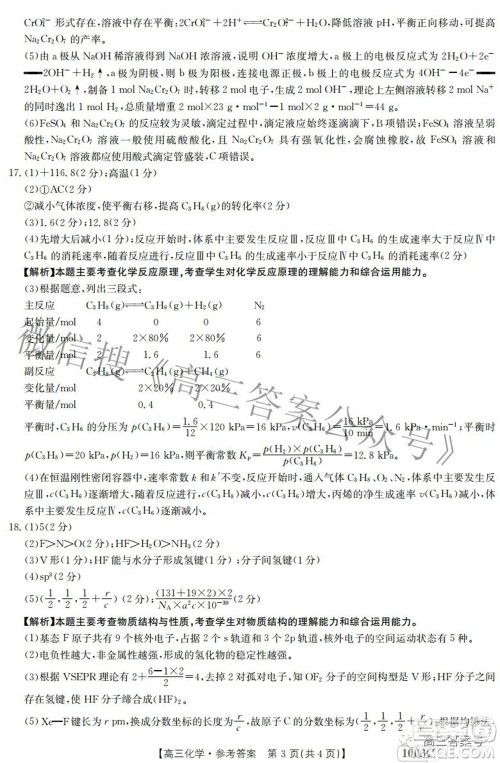 CrO₄²⁻ 形式存在,溶液中存在平衡:2CrO₄²⁻+2H⁺⇌Cr₂O₇²⁻+H₂O,降低溶液 pH,平衡正向移动,可提高
Na₂Cr₂O₇ 的产率。
(5)由 a 极从 NaOH 稀溶液得到 NaOH 浓溶液,说明 OH⁻ 浓度增大,a 极上的电极反应式为 2H₂O+2e⁻
══2OH⁻+H₂↑,a 极为阴极,则 b 极为阳极,连接电源正极,b 极上的电极反应式为 4OH⁻-4e⁻══
2H₂O+O₂↑,制备 1 mol Na₂Cr₂O₇ 时,转移 2 mol 电子,生成 2 mol OH⁻,理论上左侧溶液转移 2 mol Na⁺
的同时逸出 1 mol H₂,总质量增重 2 mol×23 g·mol⁻¹-1 mol×2 g·mol⁻¹=44 g。
(6)FeSO₄ 和 Na₂Cr₂O₇ 的反应较为灵敏,滴定过程中,滴定液应始终逐滴滴下,B 项错误;FeSO₄ 溶液呈弱
酸性,Na₂Cr₂O₇ 溶液一般使用硫酸酸化,且 Na₂Cr₂O₇ 具有强氧化性,会腐蚀橡胶,故 FeSO₄ 溶液和
Na₂Cr₂O₇ 溶液都应使用酸式滴定管盛装,C 项错误。
17.(1)+116.8(2 分);高温(1 分)
(2)①AC(2 分)
②减小气体浓度,使平衡右移,提高 C₃H₈(g)的转化率(2 分)
(3)1.6(2 分);12.8(2 分)
(4)先增大后减小(1 分);反应开始时,体系中主要发生反应Ⅲ,反应Ⅲ中 C₃H₆ 的生成速率大于反应Ⅳ中
C₃H₆ 的消耗速率,随着反应进行,体系中主要发生反应Ⅳ,C₃H₆ 的生成速率小于 C₃H₆ 的消耗速率(2 分)
【解析】本题主要考查化学反应原理,考查学生对化学反应原理的理解能力和综合运用能力。
(3)根据题意,列出三段式:
主反应 C₃H₈(g)⇌C₃H₆(g)+H₂(g) N₂
起始量/mol 4 0 0 6
变化量/mol 2 2×80% 2×80% 6
平衡量/mol 2 1.6 1.6 6
副反应 C₃H₈(g)⇌C₂H₄(g)+CH₄(g)
变化量/mol 2×20% 2×20%
平衡量/mol 0.4 0.4
平衡时,C₃H₆ 的分压为 p(C₃H₆)=1.6/12×120 kPa=16 kPa,v(C₃H₆)=16 kPa/10 min=1.6 kPa·min⁻¹;平衡时
p(C₃H₈)=20 kPa,p(H₂)=16 kPa,则平衡常数 Kₚ=p(H₂)×p(C₃H₆)/p(C₃H₈)=12.8 kPa。
(4)在恒温刚性密闭容器中,速率常数 k 和 k′不变,反应开始时,通入气体 C₃H₈、O₂、N₂,体系中主要发生反
应Ⅲ,c(C₃H₆)逐渐增大,随着反应进行,c(C₃H₈)减小,c(C₃H₆)增大,丙烯的净生成速率 v(C₃H₆)减小,体
系中主要发生反应Ⅳ,c(C₃H₆)逐渐减小。
18.(1)5(2 分)
(2)F>N>O(2 分);HF>H₂O>NH₃(2 分)
(3)V 形(1 分);HF 能与水分子形成氢键(1 分);分子间氢键(1 分)
(4)sp³(2 分)
(5)(1/2,1/2,1/2+r/c)(2 分);(131+19×2)×2/(N_A×a²c×10⁻³⁰)(2 分)
【解析】本题主要考查物质结构与性质,考查学生对物质结构的理解能力和综合运用能力。
(1)基态 F 原子共有 9 个核外电子,占据 2 个 s 轨道和 3 个 2p 轨道,核外电子的空间运动状态有 5 种。
(2)电负性越大,非金属性越强,形成的氢化物的稳定性越强。
(3)根据 VSEPR 理论有 2+(6-1×2)/2=4,去掉 2 对孤对电子,知 OF₂ 分子的空间构型是 V 形;HF 分子之间
存在氢键,使 HF 分子缔合成(HF)₂。
(5)Xe—F 键长为 r pm,换成分数坐标的长度为 r/c,故原子 C 的分数坐标为(1/2,1/2,1/2+r/c),根据均摊法
【高三化学·参考答案 第 3 页(共 4 页)】
微信搜《高三答案公众号》
高三答案号